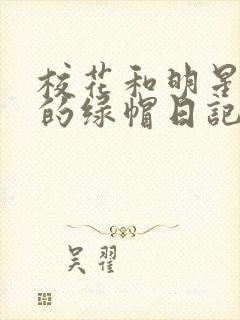 校花和明星
的绿帽日記
吴翟